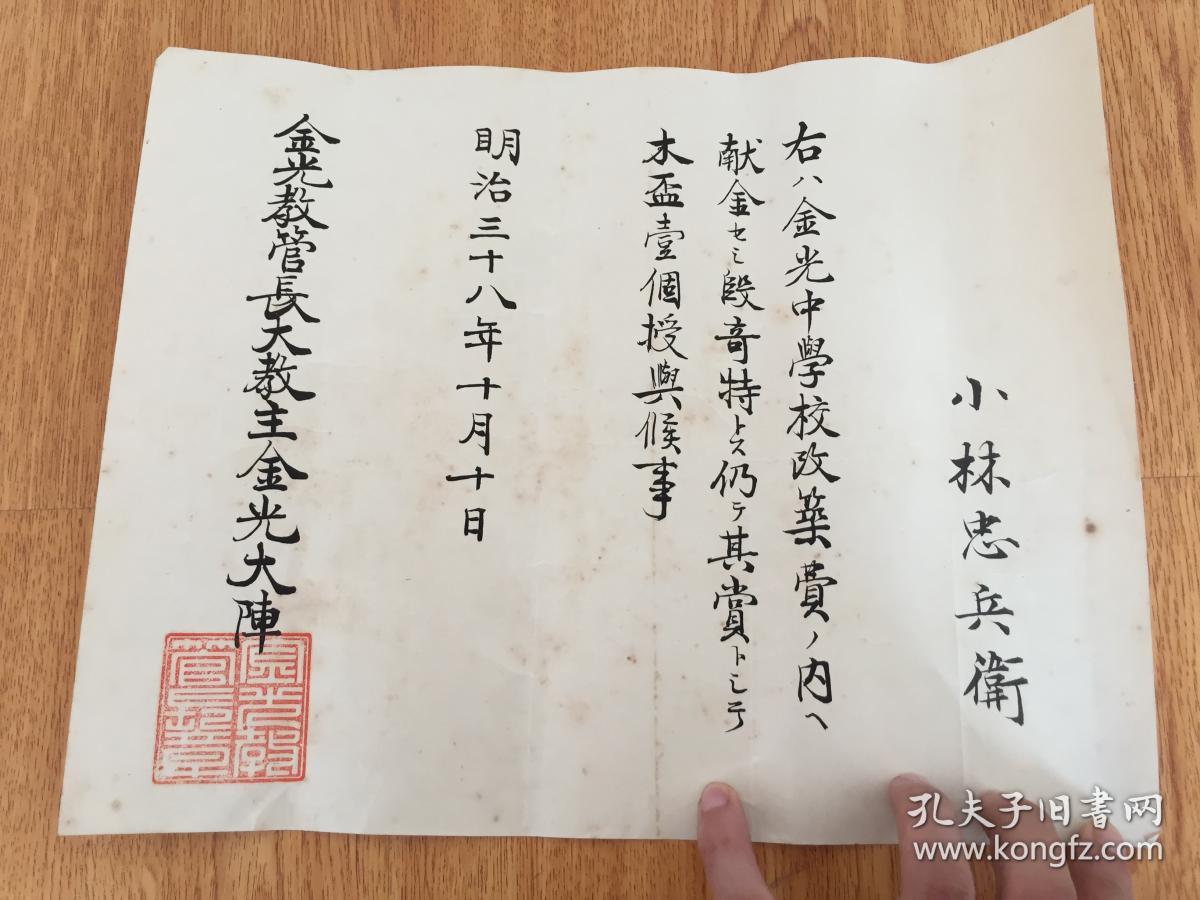 小林忠兵衛
右ハ金光中學校改築費ノ内ヘ
献金セシ段奇特トス仍テ其賞トシテ
木盃壹個授與候事
明治三十八年十月十日
金光教管長大教主金光大陣
金光教
管長之章
孔夫子旧书网
www.kongfz.com